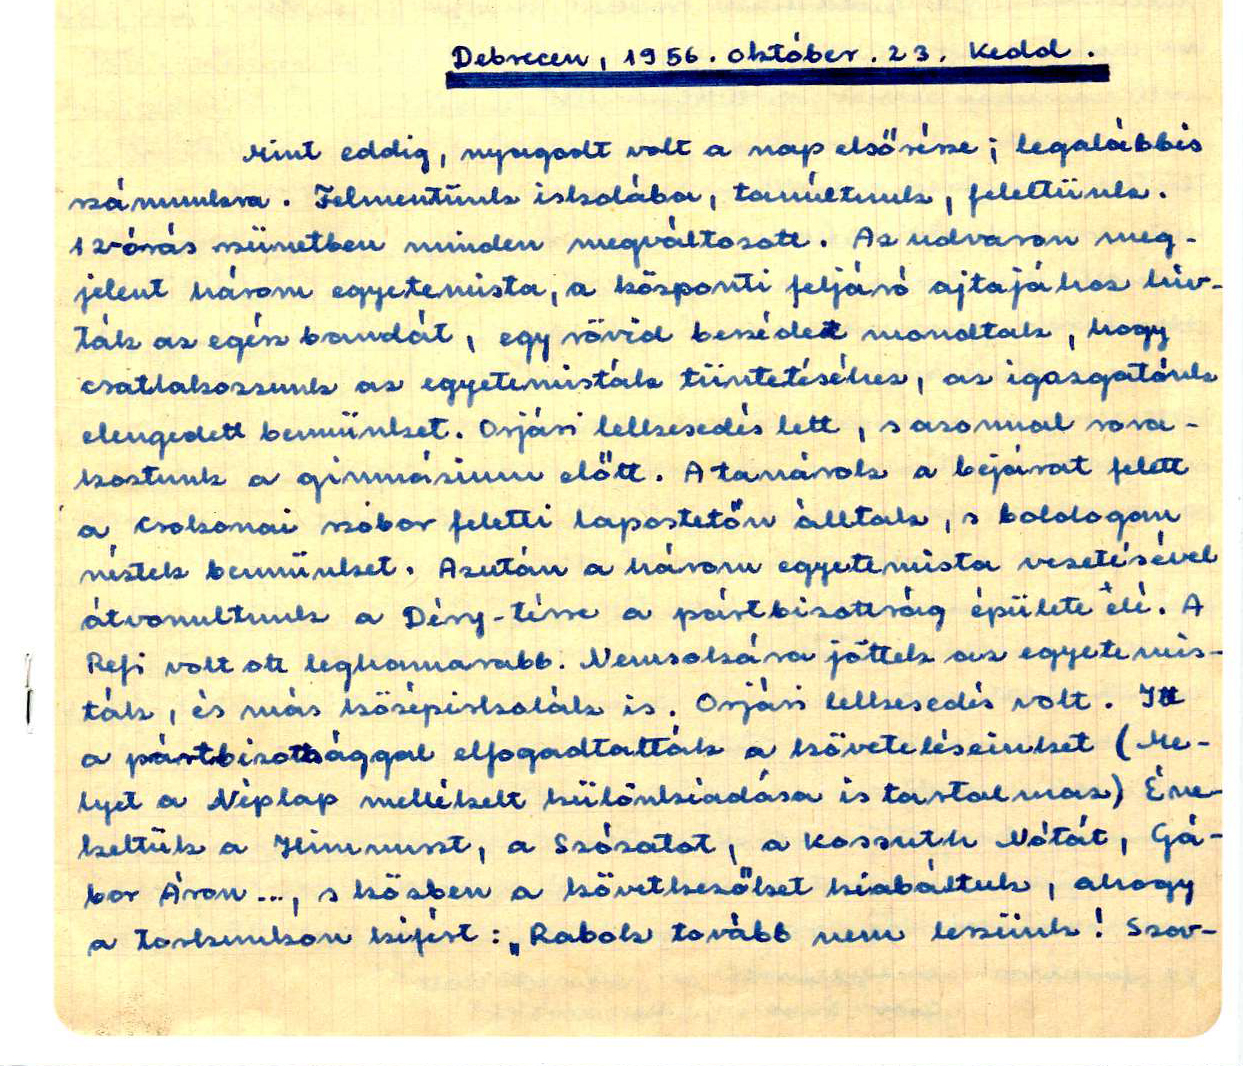 Debrecen, 1956. október. 23. Kedd.
Mint eddig, nyugodt volt a nap elsőrésze; legalábbis
számunkra. Felmentünk iskolába, tanúltunk, felettünk.
12 órás szünetben minden megváltozott. Az udvaron meg-
jelent három egyetemista, a központi feljáró ajtajához hív-
ták az egész bandát, egy rövid beszédet mondtak, hogy
csatlakozzunk az egyetemisták tüntetéséhez, az igazgatónk
elengedett bennünket. Orjási lelkesedés lett, s azonnal sora-
koztunk a gimnázium előtt. A tanárok a bejárat felett
a Csokonai szobor feletti lapostetőn álltak, s boldogan
néztek bennünket. Azután a három egyetemista vezetésével
átvonultunk a Déry-térre a pártbizottság épülete elé. A
Refi volt ott leghamarabb. Nemsokára jöttek az egyetemis-
ták, és más középiskolák is. Orjási lelkesedés volt. Itt
a pártbizottsággal elfogadtatták a követeléseinket (Me-
lyet a Néplap mellékelt különkiadása is tartalmaz) Éne-
keltük a Himnuszt, a Szózatot, a Kossuth Nótát, Gá-
bor Áron ..., s közben a következőket kiabáltuk, ahogy
a torkunkon kifért: „Rabok tovább nem leszünk! Szov-